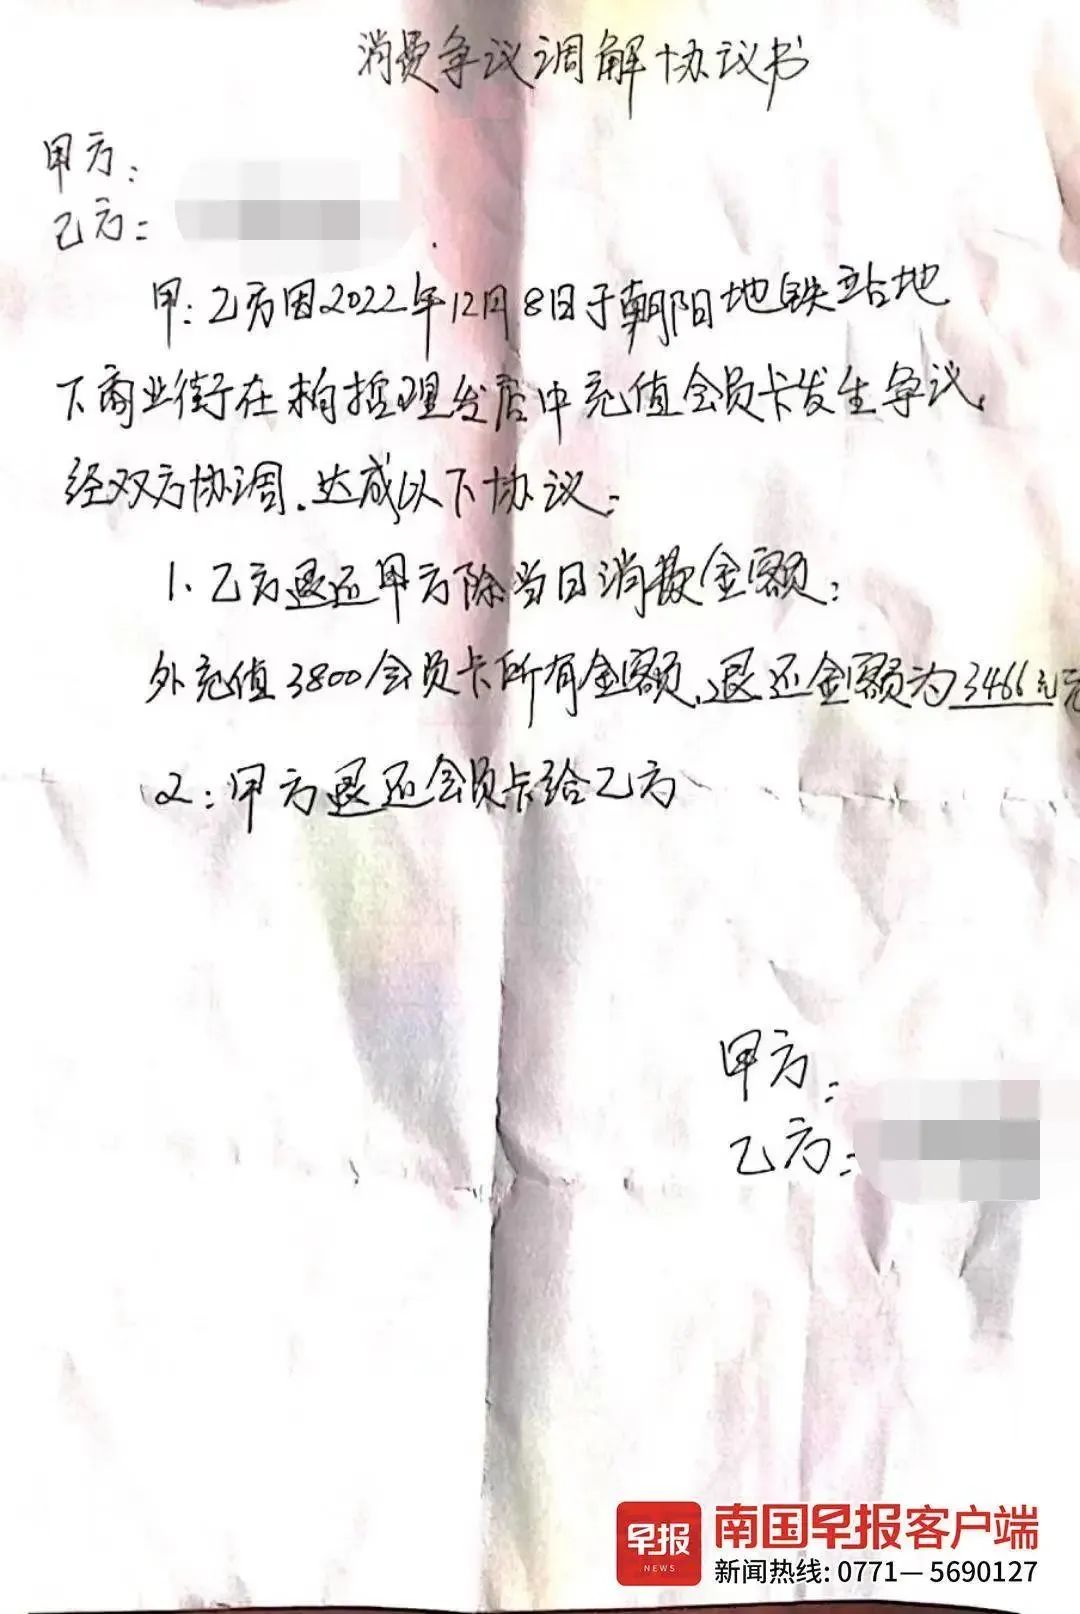 消费争议调解协议书
甲方:
乙方:
甲:乙方因2022年12月8日于朝阳地铁站地
下商业街在柏哲理发店中充值会员卡发生争议,
经双方协调.达成以下协议:
1.乙方退还甲方除当日消费金额:
外充值3800会员卡所有金额,退还金额为3466元元
2:甲方退还会员卡给乙方
甲方:
乙方:
早报
NEWS
南国早报客户端
新闻热线: 0771— 5690127